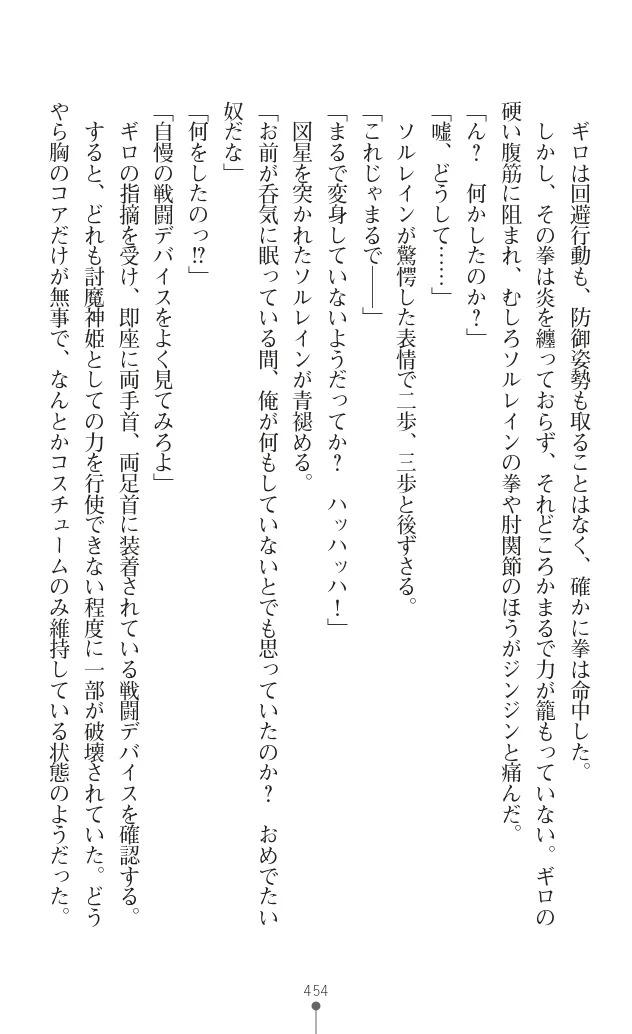 ギロは回避行動も、防御姿勢も取ることはなく、確かに拳は命中した。
　しかし、その拳は炎を纏っておらず、それどころかまるで力が籠もっていない。ギロの
硬い腹筋に阻まれ、むしろソルレインの拳や肘関節のほうがジンジンと痛んだ。
「ん？　何かしたのか？」
「嘘、どうして……」
　ソルレインが驚愕した表情で二歩、三歩と後ずさる。
「これじゃまるで――」
「まるで変身していないようだってか？　ハッハッハ！」
　図星を突かれたソルレインが青褪める。
「お前が呑気に眠っている間、俺が何もしていないとでも思っていたのか？　おめでたい
奴だな」
「何をしたのっ!?」
「自慢の戦闘デバイスをよく見てみろよ」
　ギロの指摘を受け、即座に両手首、両足首に装着されている戦闘デバイスを確認する。
　すると、どれも討魔神姫としての力を行使できない程度に一部が破壊されていた。どう
やら胸のコアだけが無事で、なんとかコスチュームのみ維持している状態のようだった。
454